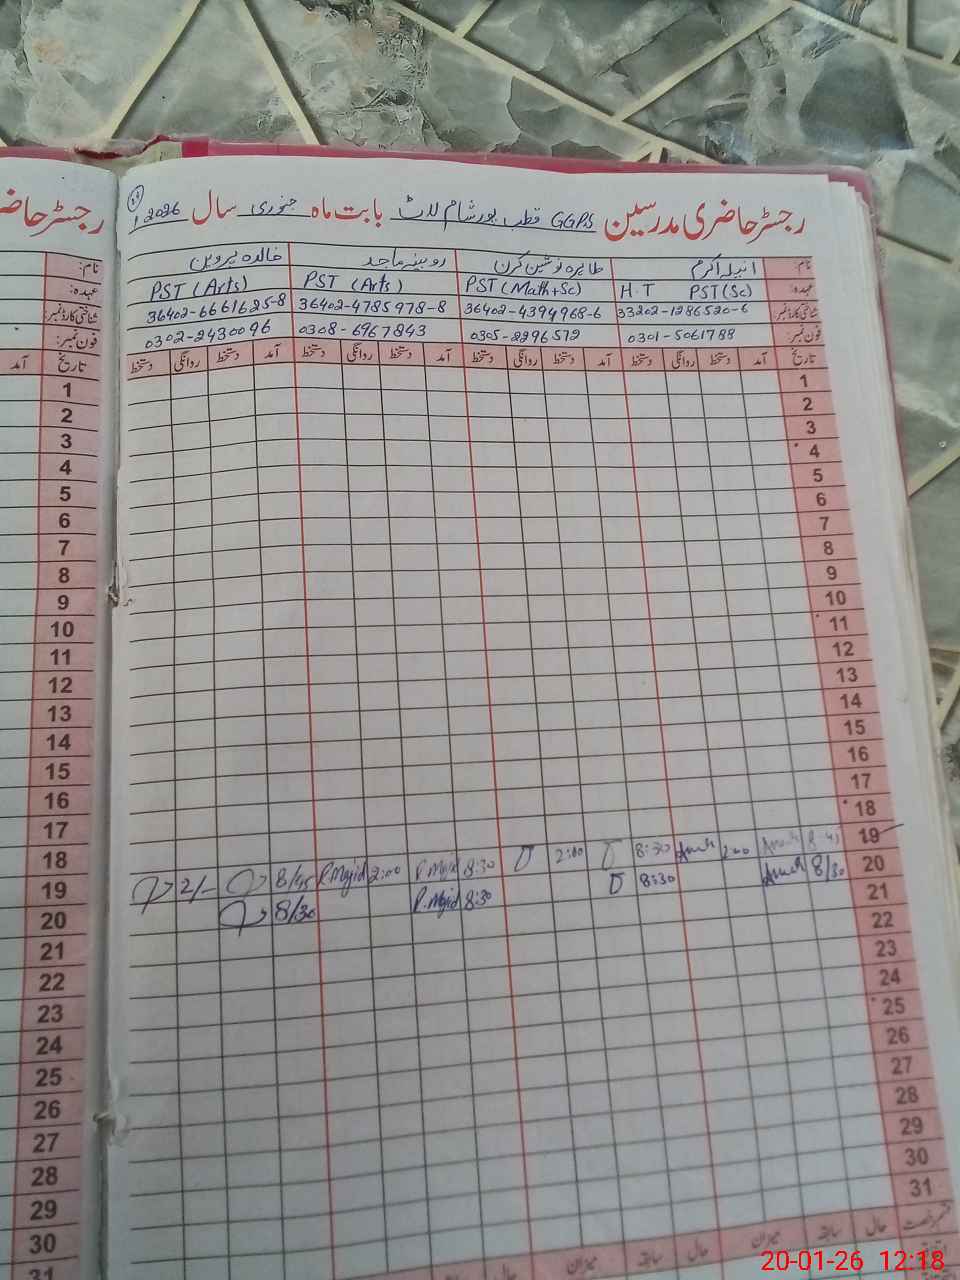 رجسٹر حاضری مدرسین GGPS قطب پور شام لاٹ بابت ماہ جنوری سال 2026
رجسٹر حاضر
نام: انیلہ اکرم طاہرہ نوشین کرن روبینہ ماجد خالدہ پروین
عہدہ: H.T PST(Sc) PST(Math+Sc) PST (Arts) PST (Arts)
شناختی کارڈ نمبر: 33202-1286520-6 36402-4394968-6 36402-4785978-8 36402-6661625-8
فون نمبر: 0301-5061788 0305-2296572 0308-6967843 0302-2430096
تاریخ آمد دستخط روانگی دستخط آمد دستخط روانگی دستخط آمد دستخط روانگی دستخط آمد دستخط روانگی دستخط
نام:
عہدہ:
شناختی کارڈ نمبر:
فون نمبر:
تاریخ آمد
1
2
3
4
5
6
7
8
9
10
11
12
13
14
15
16
17
18
19 8:45 2:00 8:30 2:00 8:30 R.Majid 2:00 R.Majid 8/45 2/-
20 8/30 8:30 8:30 R.Majid 8/30
21
22
23
24
25
26
27
28
29
30
31
حال سابقہ میزان حال سابقہ میزان حال سابقہ
1
2
3
4
5
6
7
8
9
10
11
12
13
14
15
16
17
18
19
20
21
22
23
24
25
26
27
28
29
30
31
20-01-26 12:18